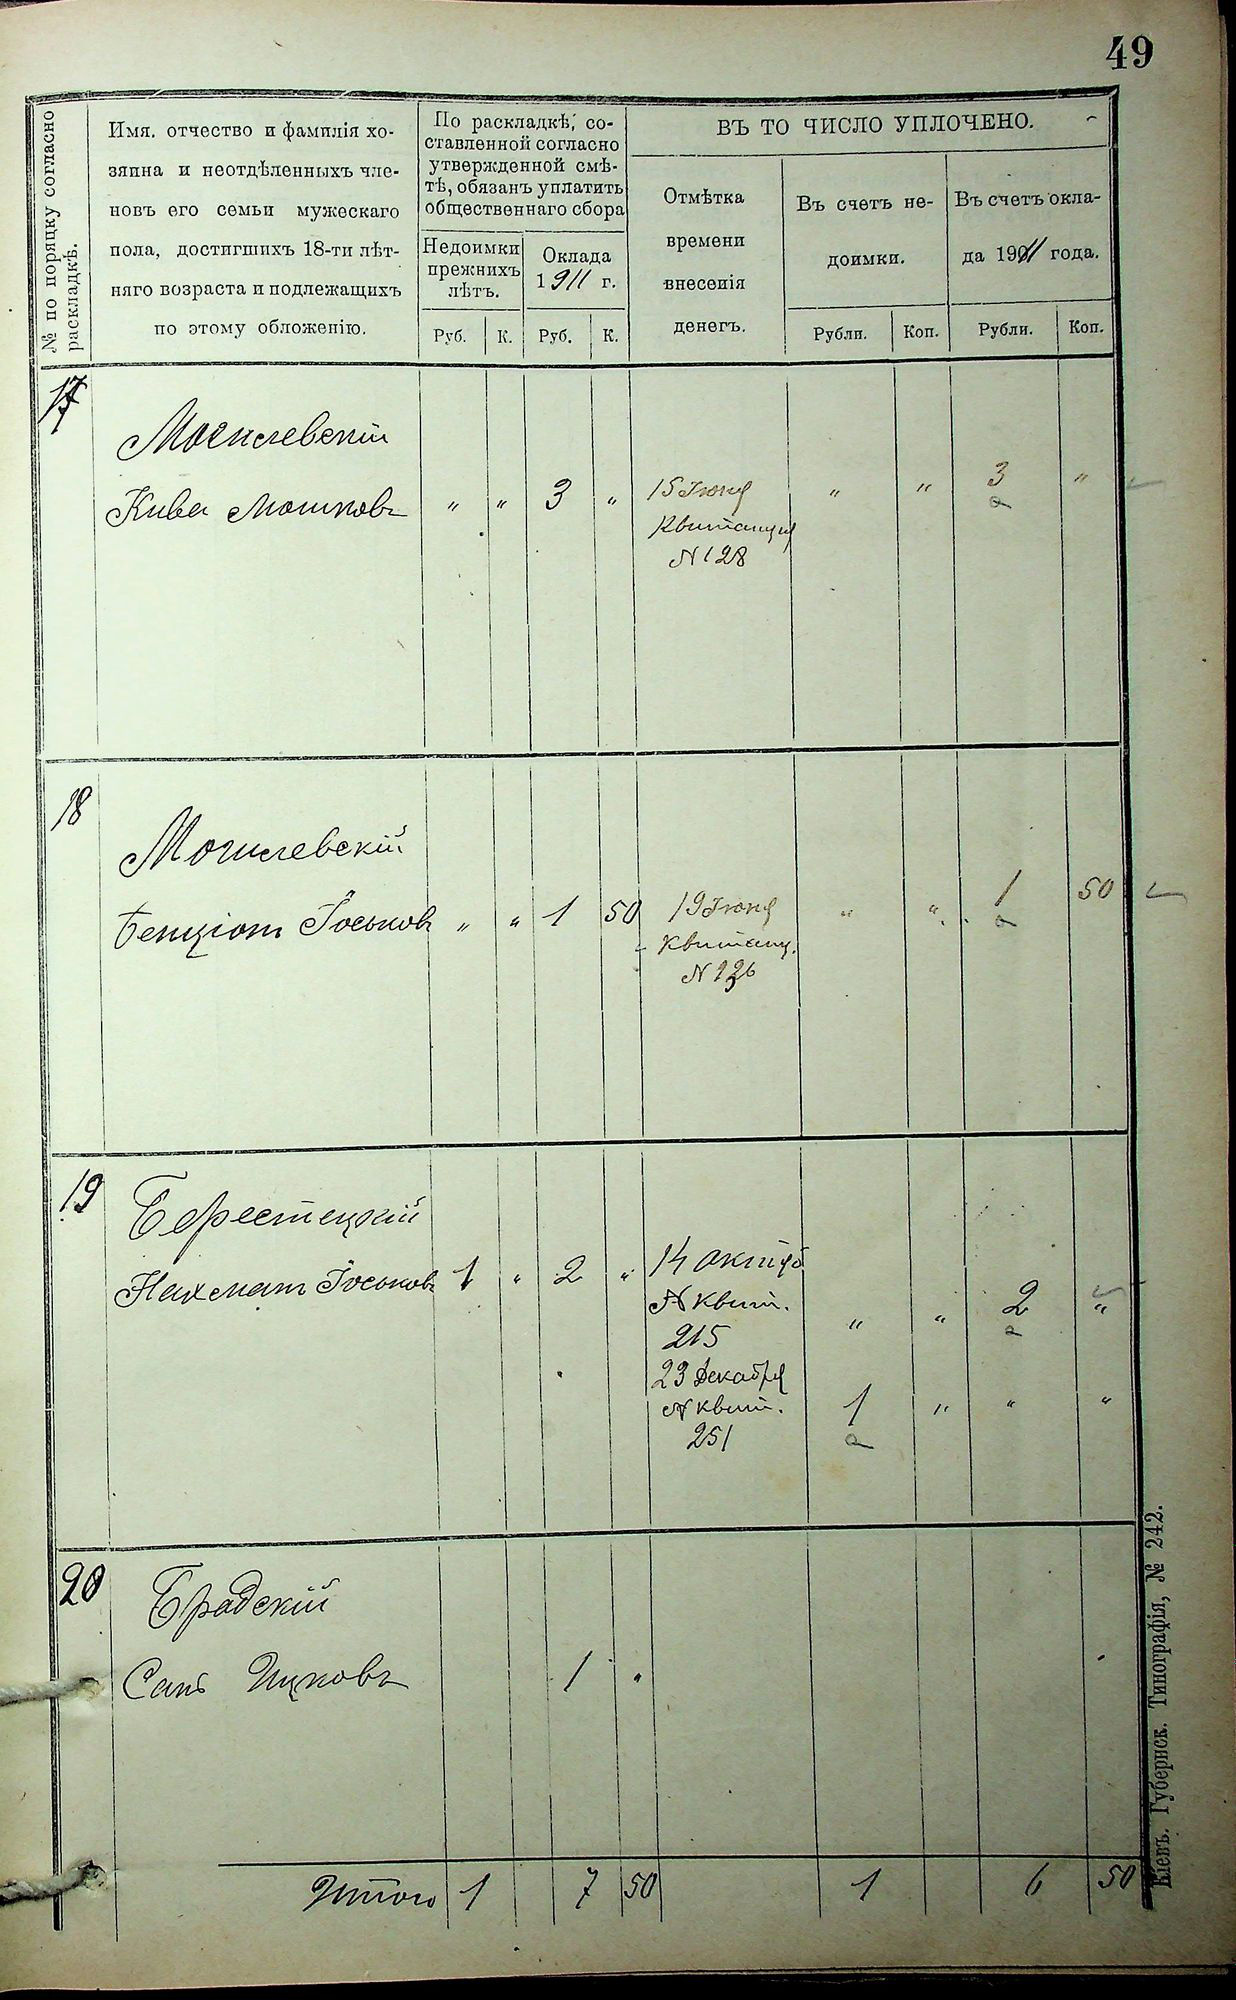 49
№ по порядку согласно
раскладкѣ.
Имя, отчество и фамилія хо-
зяина и неотдѣленныхъ чле-
новъ его семьи мужескаго
пола, достигшихъ 18-ти лѣт-
няго возраста и подлежащихъ
по этому обложенію.
По раскладкѣ, со-
ставленной согласно
утвержденной смѣ-
тѣ, обязанъ уплатить
общественнаго сбора
Недоимки
прежнихъ
лѣтъ.
Руб. К.
Оклада
1911 г.
Руб. К.
ВЪ ТО ЧИСЛО УПЛОЧЕНО.
Отмѣтка
времени
внесенія
денегъ.
Въ счетъ не-
доимки.
Рубли. Коп.
Въ счетъ окла-
да 1911 года.
Рубли. Коп.
17
Могилевскій
Кива Мошковъ " " 3 " 15 Іюня " " 3 "
Квитанція
N 128
18
Могилевскій
Бенціонъ Іоськовъ " " 1 50 19 Іюня " " 1 50
Квитанц.
N 136
19
Берестецкій
Нахманъ Іоськовъ 1 " 2 " 14 октяб
N квит. " " 2 "
215
23 Декабря
N квит. 1 " " "
251
20
Брадскій
Ицковъ 1 "
Итого 1 7 50 1 6 50
Кіевъ. Губернск. Типографія, № 242.